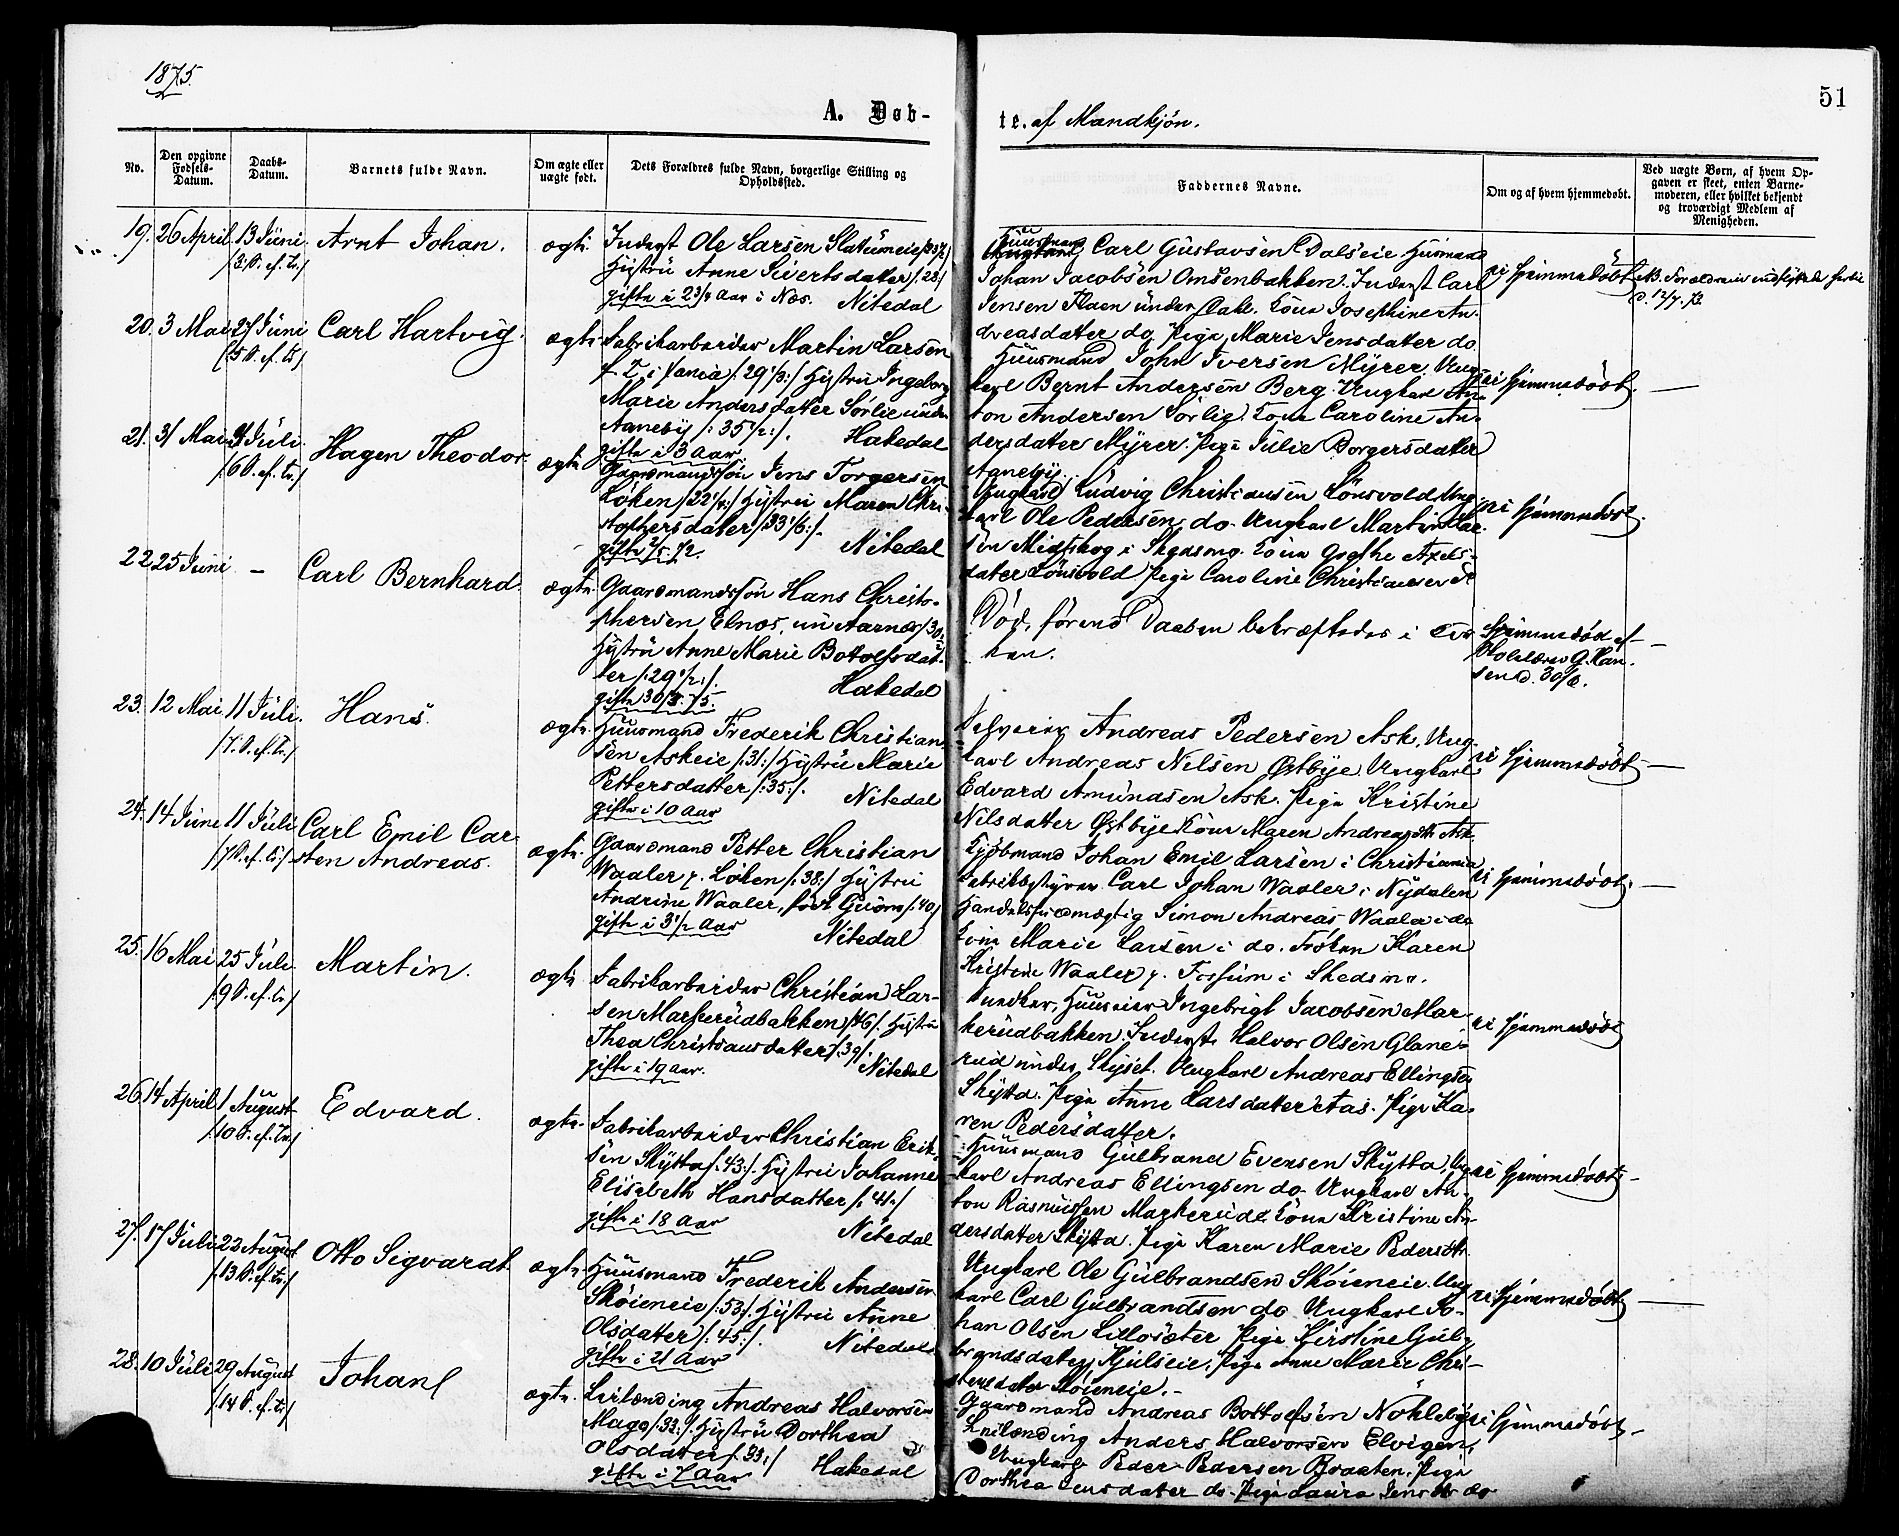 1875.
51
A. Døb-
te. af Mandkjøn.
No.
Den opgivne Fødsels-Datum.
Daabs-Datum.
Barnets fulde Navn.
Om ægte eller uægte født.
Dets Forældres fulde Navn, borgerlige Stilling og Opholdssted.
Faddernes Navne.
Om og af hvem hjemmedøbt.
Ved uægte Børn, af hvem Opgaven er skeet, enten Barnemoderen, eller hvilket bekjendt og troværdigt Medlem af Menigheden.
19. 26 April 13 Juni Arnt Johan. ægte
/3. S. ef. Tr./
Inderst Ole Larsen Slatumeie
Hustru Anne Sivertsdatter /: 28 :/
gifte i 2 3/4 Aar i Næs. Nitedal
Carl Gustavsen Dalseie Husmand
Johan Jacobsen Onsenbakken. Inderst Carl
Jensen Flaen under Dahl. Kone Josephine An-
dreasdatter do Pige Marie Jensdatter do.
ei hjemmedøbt
20. 3 Mai 27 Juni Carl Hartvig. ægte
/5 S. ef. Tr/
Fabrikarbeider Martin Larsen
/: 29 1/3 :/ Hustru Ingeborg
Marie Andersdatter Sørlie under
Aaneby /: 35 1/2 :/. Hakedal
gifte i 3 Aar.
Huusmand John Iversen Myrer. Ung-
karl Bernt Andersen Berg. Ungkarl An-
ton Andersen Sørlie. Kone Caroline An-
dersdatter Myrer. Pige Julie Borgersdatter
Aaneby.
ei hjemmedøbt. —
21. 31 Mai Juli Hagen Theodor ægte
/6 S. ef. Tr./
Gaardmandssøn Jens Torgersen
Løken /22 1/4/ Hustru Maren Chri-
stophersdatter /33 1/6 :/.
gifte 2/5 72. Nitedal
Ungkarl Ludvig Christiansen Lönsvold Ung-
karl Ole Pedersen do. Ungkarl Martin Lar-
sen Midtskog i Skedsmo. Kone Grethe Axels-
datter Lönsvold Pige Caroline Christiansen
ei hjemmedøbt.
22. 25 Juni — Carl Bernhard. ægte
Gaardmandssøn Hans Christo-
phersen Elnes, nu Aarnes /30
Hustru Anne Marie Botolfsdat-
ter /: 29 1/2 :/.
gifte 30/3 75. Hakedal
Død, førend Daaben bekræftedes i Kir
ken.
Hjemmedøbt af
Skolelærer G. Han-
sen d. 30/6. —
23. 12 Mai 11 Juli. Hans. ægte
/7. S. ef. Tr./
Huusmand Frederik Christian-
sen Askeie /: 31 :/ Hustru Marie
Pettersdatter /: 35 :/.
gifte i 10 Aar Nitedal
Selveier Andreas Pedersen Ask, Ung-
karl Andreas Nilsen Østbye. Ungkarl
Edvard Amundsen Ask. Pige Kristine
Nilsdatter Østbye Kone Maren Andreasdtr Ask
ei hjemmedøbt —
24. 14 Juni 11 Juli Carl Emil Car-
sten Andreas. ægte.
/7 S. ef. Tr./
Gaardmand Petter Christian
Waaler p. Løken /: 38 :/ Hustru
Andrine Waaler, født /: 40/
gifte i 3 1/2 Aar Nitedal
Kjøbmand Johan Emil Larsen i Christiania
Fabrikbestyrer Carl Johan Waaler i Nydalen
Handelsfuldmægtig Simon Andreas Waaler i do
Kone Marie Larsen i do. Frøken Karen
Kristine Waaler p. Fossum i Skedsmo.
ei hjemmedøbt. —
25. 16 Mai 25 Juli. Martin. ægte
/9 S. ef. Tr/
Fabrikarbeider Christian Lar-
sen Markerudbakken /46/. Hustru
Thea Christiansdatter /. 39/
gifte i 19 Aar. Nitedal
Snedker, Huuseier Ingebrigt Jacobsen Mar-
kerudbakken. Inderst Halvor Olsen Glane-
rud under Skyset. Ungkarl Andreas Ellingsen
Skytta. Pige Anne Larsdatter Aas. Pige Ka-
ren Pedersdatter.
ei hjemmedøbt
26. 14 April 1 August Edvard. ægte.
/10 S. ef. Tr/
Fabrikarbeider Christian Erik-
sen Skytta /: 43 :/. Hustru Johanne
Elisabeth Hansdatter /: 41 :/
gifte i 18 Aar Nitedal
Huusmand Gulbrand Evensen Skytta, Ung-
karl Andreas Ellingsen do. Ungkarl An-
ton Rasmussen Markerud. Kone Kristine An-
dersdatter Skytta. Pige Karen Marie Pedersdtr.
ei hjemmedøbt —
27. 17 Juli 22 August Otto Sigvardt ægte.
/13 S. ef. Tr/
Huusmand Frederik Andersen
Skøieneie /: 53 :/. Hustru Anne
Olsdatter /: 45 :/.
gifte i 21 Aar Nitedal
Ungkarl Ole Gulbrandsen Skøieneie. Ung-
karl Carl Gulbrandsen do Ungkarl Jo-
han Olsen Lillosæter Pige Kirstine Gul-
brandsdatter Kjulseie. Pige Anne Marie Chri-
stensdatter Skøieneie.
ei hjemmedøbt —
28. 10 Juli 29 August Johan ægte.
/14 S. ef. Tr/
Leilænding Andreas Halvorsen
Mago /: 32 :/. Hustru Dorthea
Olsdatter /: 33 :/
gifte i 7 Aar Hakedal
Gaardmand Andreas Bottolfsen Nökleby
Leilænding Anders Halvorsen Elvigen,
Ungkarl Peder Pedersen Braaten. Pige
Dorthea Jensdatter do. Pige Laura Jensdtr do
ei hjemmedøbt —